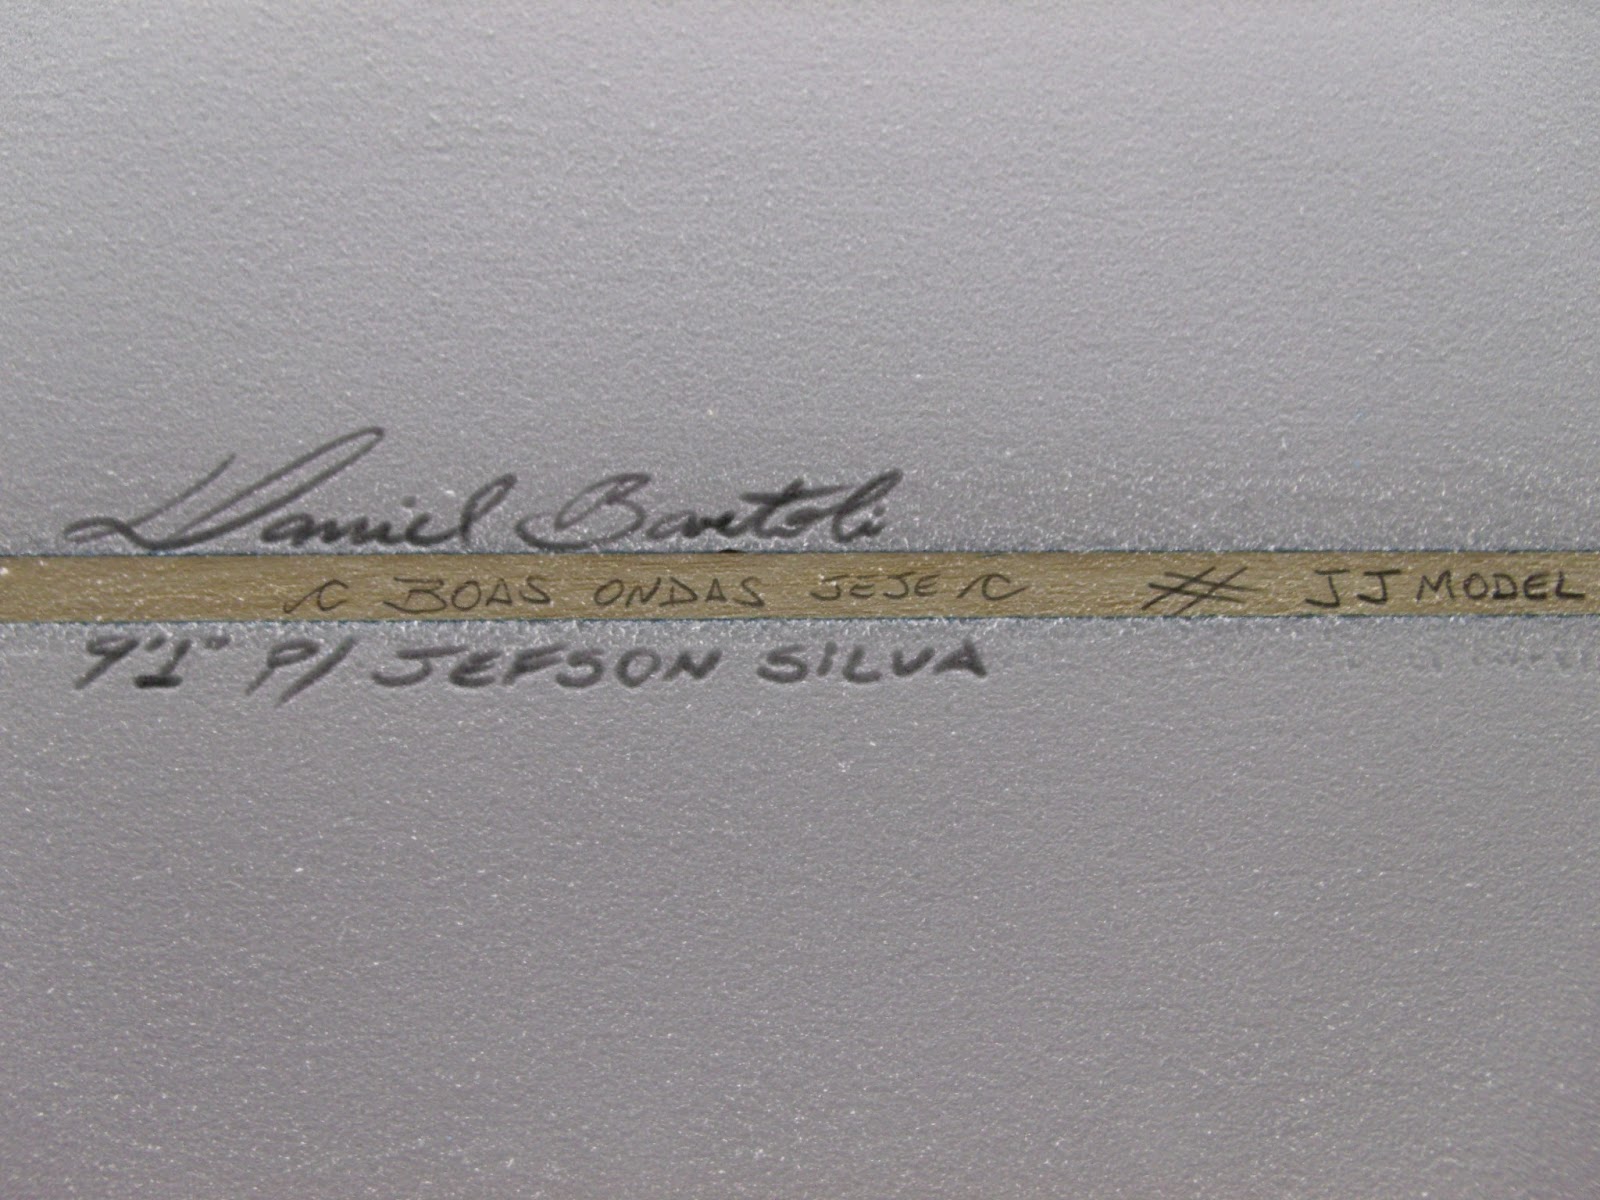 Daniel Bartoli
BOAS ONDAS JEJE JJ MODEL
9'1" P/ JEFSON SILVA